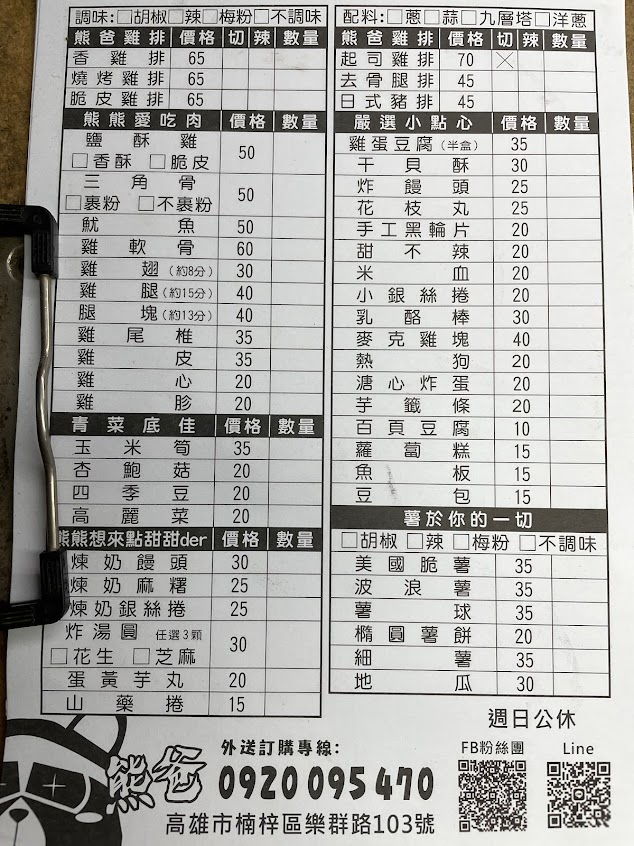 調味:□胡椒□辣□梅粉□不調味
熊爸雞排 價格 切 辣 數量
香雞排 65
燒烤雞排 65
脆皮雞排 65
熊熊愛吃肉 價格 數量
鹽酥雞 50
□香酥 □脆皮
三角骨 50
□裹粉 □不裹粉
魷魚 50
雞軟骨 60
雞翅(約8分) 30
雞腿(約15分) 40
腿塊(約13分) 40
雞尾椎 35
雞皮 35
雞心 20
雞胗 20
青菜底佳 價格 數量
玉米筍 35
杏鮑菇 20
四季豆 20
高麗菜 20
熊熊想來點甜甜der 價格 數量
煉奶饅頭 30
煉奶麻糬 25
煉奶銀絲捲 25
炸湯圓 任選3顆 30
□花生 □芝麻
蛋黃芋丸 20
山藥捲 15
配料:□蔥□蒜□九層塔□洋蔥
熊爸雞排 價格 切 辣 數量
起司雞排 70
去骨腿排 45
日式豬排 45
嚴選小點心 價格 數量
雞蛋豆腐(半盒) 35
干貝酥 30
炸饅頭 25
花枝丸 25
手工黑輪片 20
甜不辣 20
米血 20
小銀絲捲 20
乳酪棒 30
麥克雞塊 40
熱狗 20
溏心炸蛋 20
芋籤條 20
百頁豆腐 10
蘿蔔糕 15
魚板 15
豆包 15
薯於你的一切
□胡椒 □辣 □梅粉 □不調味
美國脆薯 35
波浪薯 35
薯球 35
橢圓薯餅 20
細薯 35
地瓜 30
週日公休
熊爸
外送訂購專線:
0920 095 470
高雄市楠梓區樂群路103號
FB粉絲團
Line